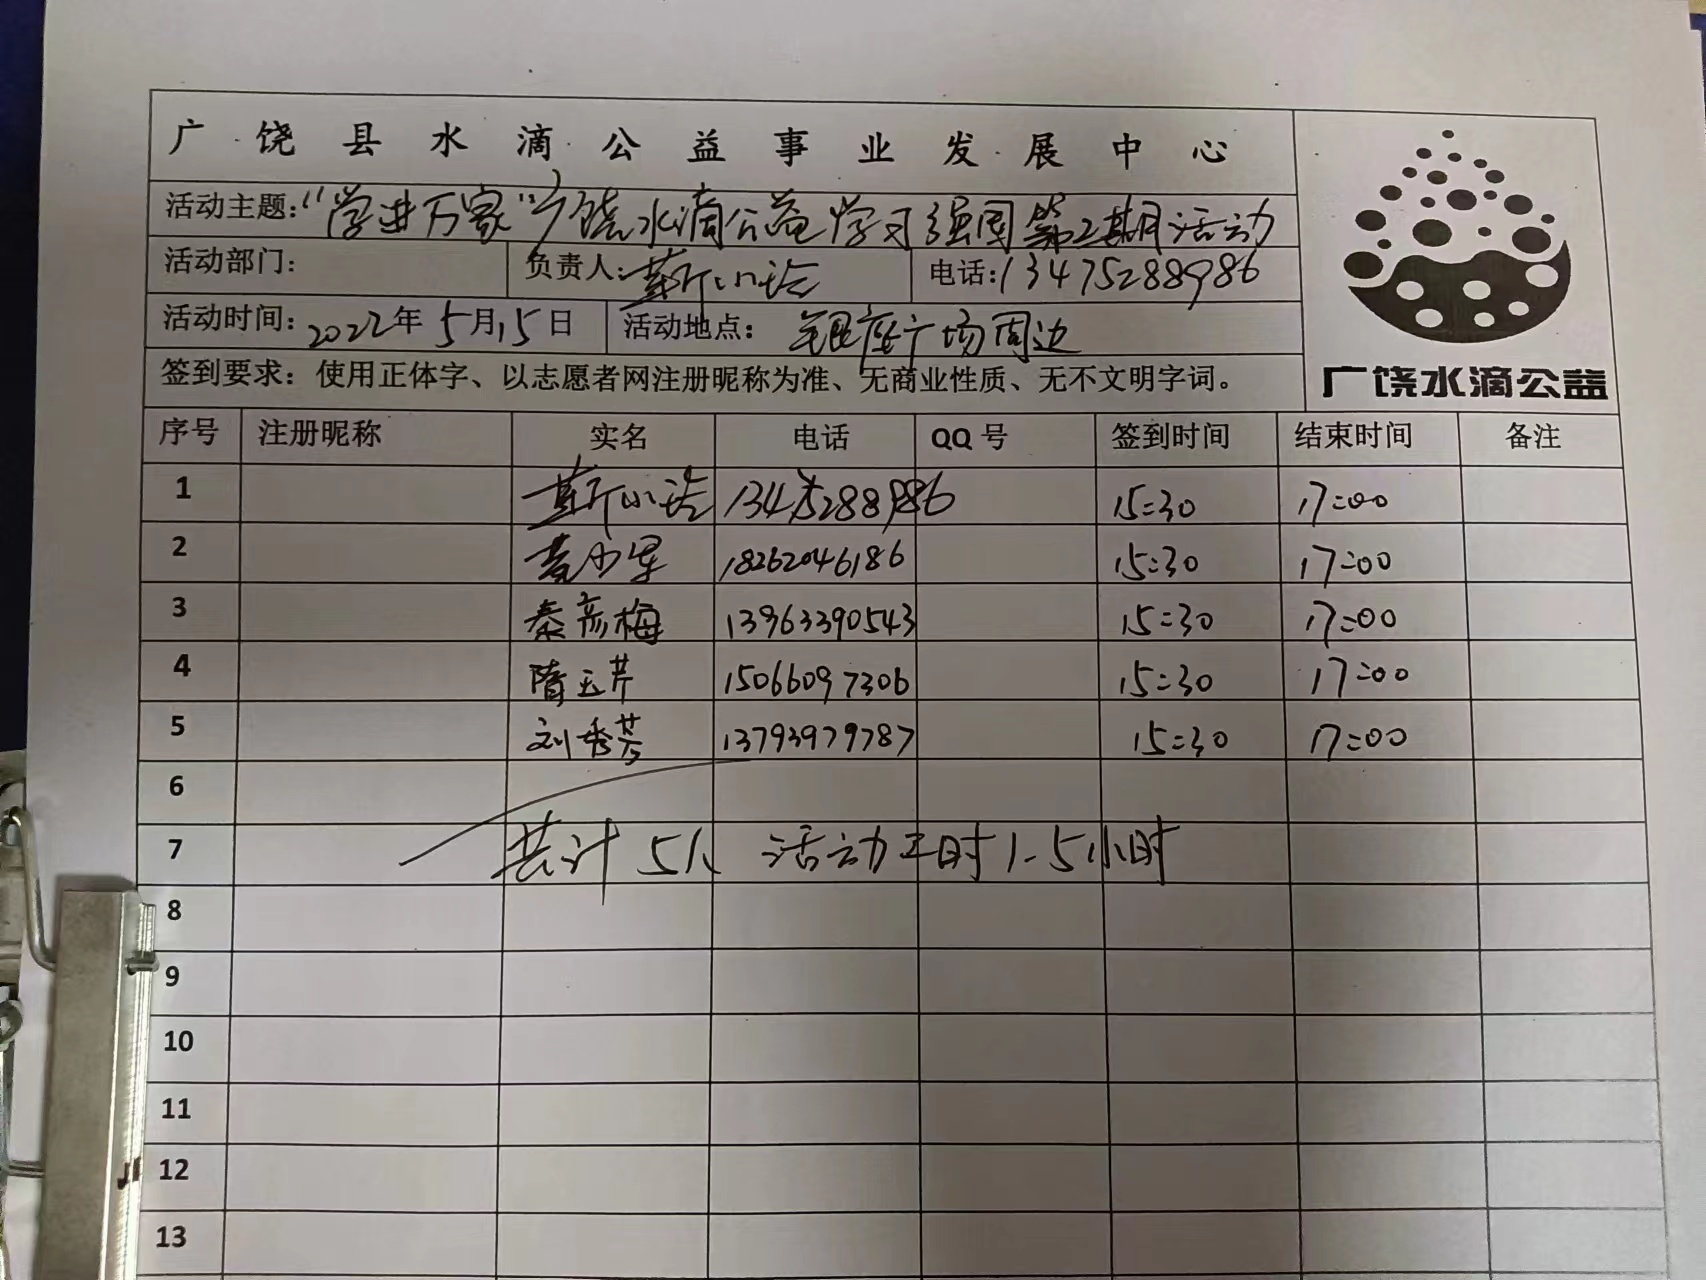 广饶县水滴公益事业发展中心
活动主题：“学进万家”广饶水滴公益学习强国第2期活动
活动部门： 负责人：靳小 电话：13475288986
活动时间：2022年5月15日 活动地点：银座广场周边
签到要求：使用正体字、以志愿者网注册昵称为准、无商业性质、无不文明字词。
广饶水滴公益
序号 注册昵称 实名 电话 QQ 号 签到时间 结束时间 备注
1 靳小 13475288986 15:30 17:00
2 18262046186 15:30 17:00
3 秦彦梅 13963390543 15:30 17:00
4 隋玉芹 15066097306 15:30 17:00
5 刘秀芳 13793979787 15:30 17:00
6
7 共计5人 活动工时1.5小时
8
9
10
11
12
13